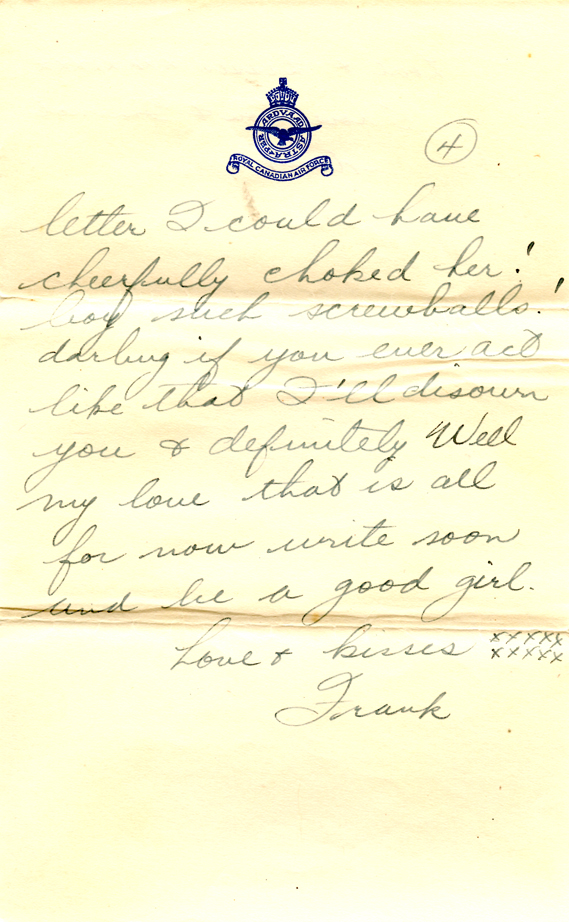 PER ARDVA AD ASTRA
ROYAL CANADIAN AIR FORCE
4
letter I could have
cheerfully choked her!
boy such screwballs!
darling if you ever act
like that I'll disown
you & definitely Well
my love that is all
for now write soon
and be a good girl.
Love & kisses xxxxx
xxxxx
Frank